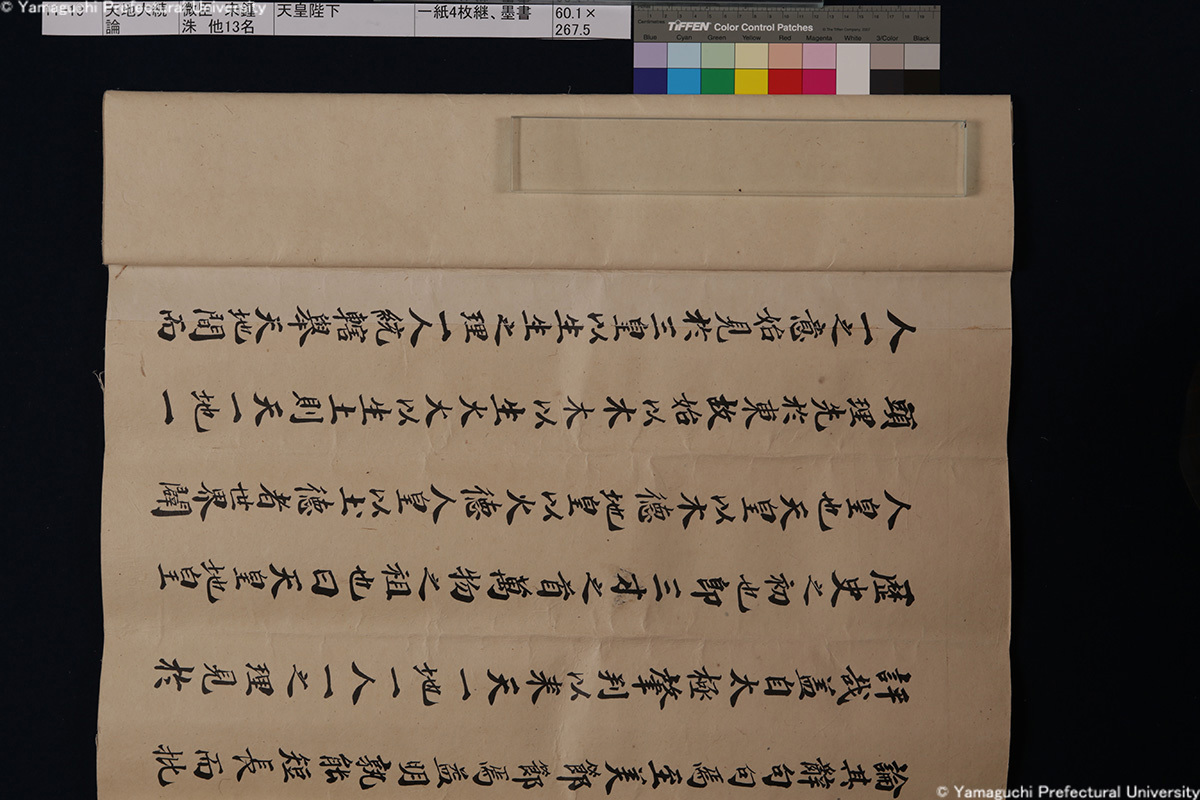 © Yamaguchi Prefectural University
論
洙 他13名
天皇陛下
一紙4枚継、墨書
60.1×
267.5
TIFFEN Color Control Patches
Blue Cyan Green Yellow Red Magenta White 3/Color Black
論其辭句句焉至美節節焉益明孰能短長而批
評哉蓋自太極肇判以来天一地一人一之理見於
歷史之初也即三才之首萬物之祖也曰天皇地皇
人皇也天皇以木德地皇以火德人皇以土德者世界闢
頭理先於東故始以木木以生火火以生土則天一地一
人一之意始見於三皇以生生之理一人統轄與天地間而
© Yamaguchi Prefectural University